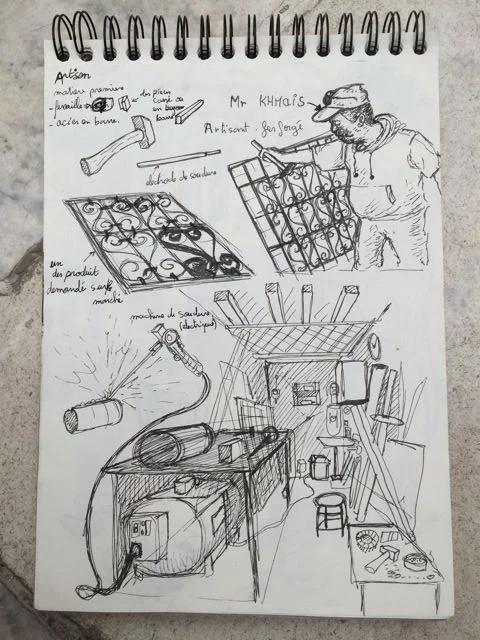 Artisan
matière première
- ferraille
des pièces
carré ou
en
barre
- acier en barre.
Mr KHMAIS
Artisant . fer forgé
éléctrode de soudure
un
des produit
demandé sur le
marché
machine de soudure
(électrique)